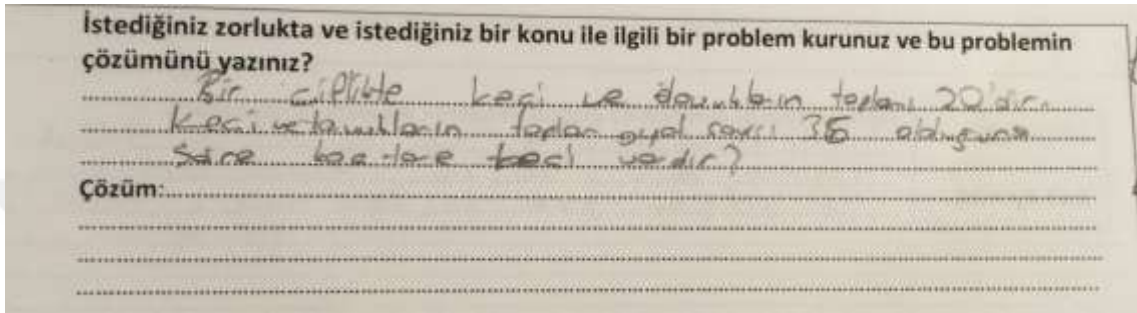 İstediğiniz zorlukta ve istediğiniz bir konu ile ilgili bir problem kurunuz ve bu problemin
çözümünü yazınız?
Bir çiftlikte keçi ve tavukların toplamı 20'dir.
Keçi ve tavukların toplam ayak sayısı 36 olduğuna
göre kaç tane keçi vardır?
Çözüm: